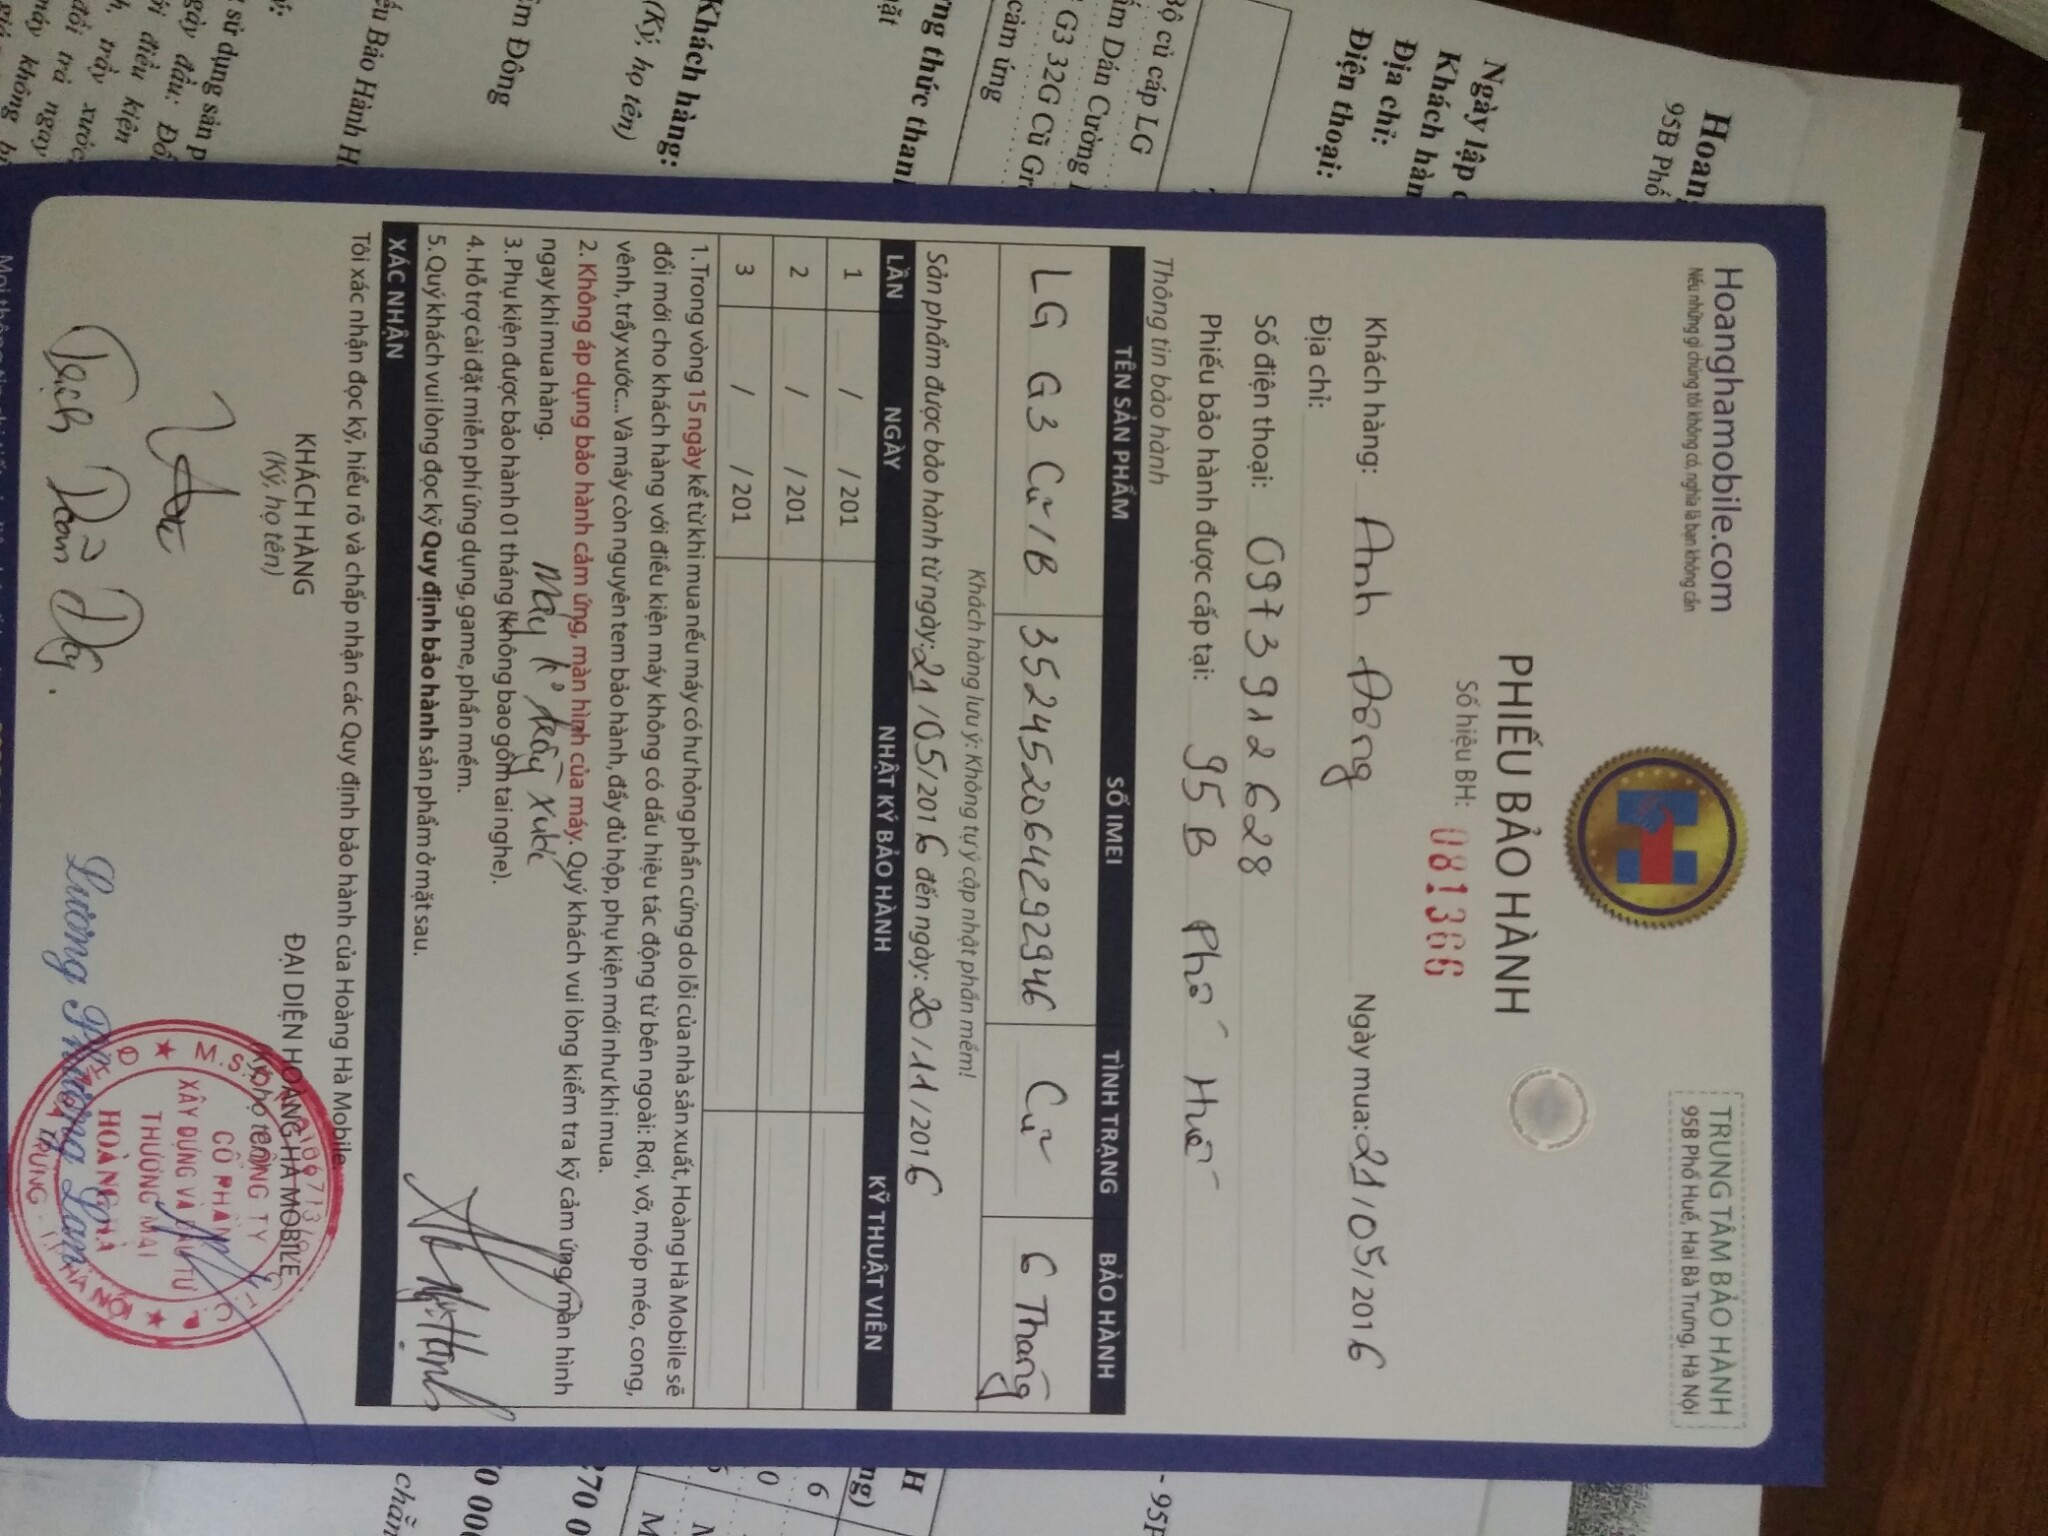 Hoanghamobile.com
Nếu những gì chúng tôi không có, nghĩa là bạn không cần
TRUNG TÂM BẢO HÀNH
95B Phố Huế, Hai Bà Trưng, Hà Nội
PHIẾU BẢO HÀNH
Số hiệu BH: 081366
Khách hàng: Anh Đông Ngày mua: 21/05/2016
Địa chỉ:
Số điện thoại: 0973912628
Phiếu bảo hành được cấp tại: 95B Phố Huế
Thông tin bảo hành
TÊN SẢN PHẨM SỐ IMEI TÌNH TRẠNG BẢO HÀNH
LG G3 Cũ/B 352452064292946 Cũ 6 Tháng
Khách hàng lưu ý: Không tự ý cập nhật phần mềm!
Sản phẩm được bảo hành từ ngày: 21/05/2016 đến ngày: 20/11/2016
LẦN NGÀY NHẬT KÝ BẢO HÀNH KỸ THUẬT VIÊN
1 / /201
2 / /201
3 / /201
1. Trong vòng 15 ngày kể từ khi mua nếu máy có hư hỏng phần cứng do lỗi của nhà sản xuất, Hoàng Hà Mobile sẽ
đổi mới cho khách hàng với điều kiện máy không có dấu hiệu tác động từ bên ngoài: Rơi, vỡ, móp méo, cong,
vênh, trầy xước... Và máy còn nguyên tem bảo hành, đầy đủ hộp, phụ kiện mới như khi mua.
2. Không áp dụng bảo hành cảm ứng, màn hình của máy. Quý khách vui lòng kiểm tra kỹ cảm ứng, màn hình
ngay khi mua hàng.
Máy bị trầy xước
3. Phụ kiện được bảo hành 01 tháng (không bao gồm tai nghe).
4. Hỗ trợ cài đặt miễn phí ứng dụng, game, phần mềm.
5. Quý khách vui lòng đọc kỹ Quy định bảo hành sản phẩm ở mặt sau.
XÁC NHẬN
Tôi xác nhận đọc kỹ, hiểu rõ và chấp nhận các Quy định bảo hành của Hoàng Hà Mobile
KHÁCH HÀNG
(Ký, họ tên)
ĐẠI DIỆN HOÀNG HÀ MOBILE
(Ký, họ tên)
CÔNG TY
CỔ PHẦN
XÂY DỰNG VÀ ĐẦU TƯ
THƯƠNG MẠI
HOÀNG HÀ
Lương Phương Lam
Ngày lập
Khách hàn
Địa chỉ:
Điện thoại:
95B Phố
Bộ củ cáp LG
Dán Cường
G3 32G Cũ
cảm ứng
thức than
Khách hàng:
(Ký, họ tên)
Đông
Bảo Hành H
sử dụng sản p